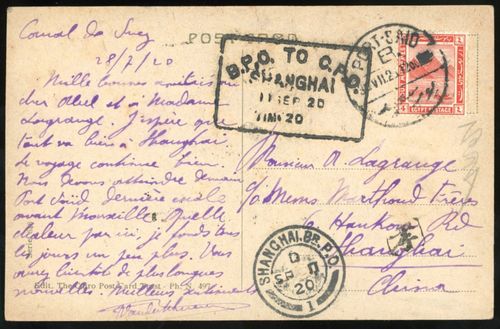 Canal de Suez
28/7/20
Mille bonnes amitiés au
cher Albert et à Madame
Lagrange. J'espère que
tout va bien à Shanghai
le voyage continue bien.
Nous devons atteindre demain
Port Saïd dernière escale
avant Marseille. Quelle
chaleur par ici, je fonds tous
les jours un peu plus. Vous
aurez bientôt de plus longues
nouvelles. Meilleurs
POST CARD
B.P.O. TO C.P.O.
SHANGHAI
11 SEP 20
PORT-SAID
EGYPT POSTAGE
4
Monsieur A. Lagrange
c/o Messrs Frères
Hankow Rd
Shanghai
China
SHANGHAI. BR. P.O.
20
1
Edit. The Cairo Post Card Trust - Ph. N. 497